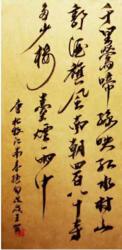 千里鶯啼綠映紅水村山
郭酒旗風南朝四百八十寺
多少樓臺煙雨中
唐杜牧江南春